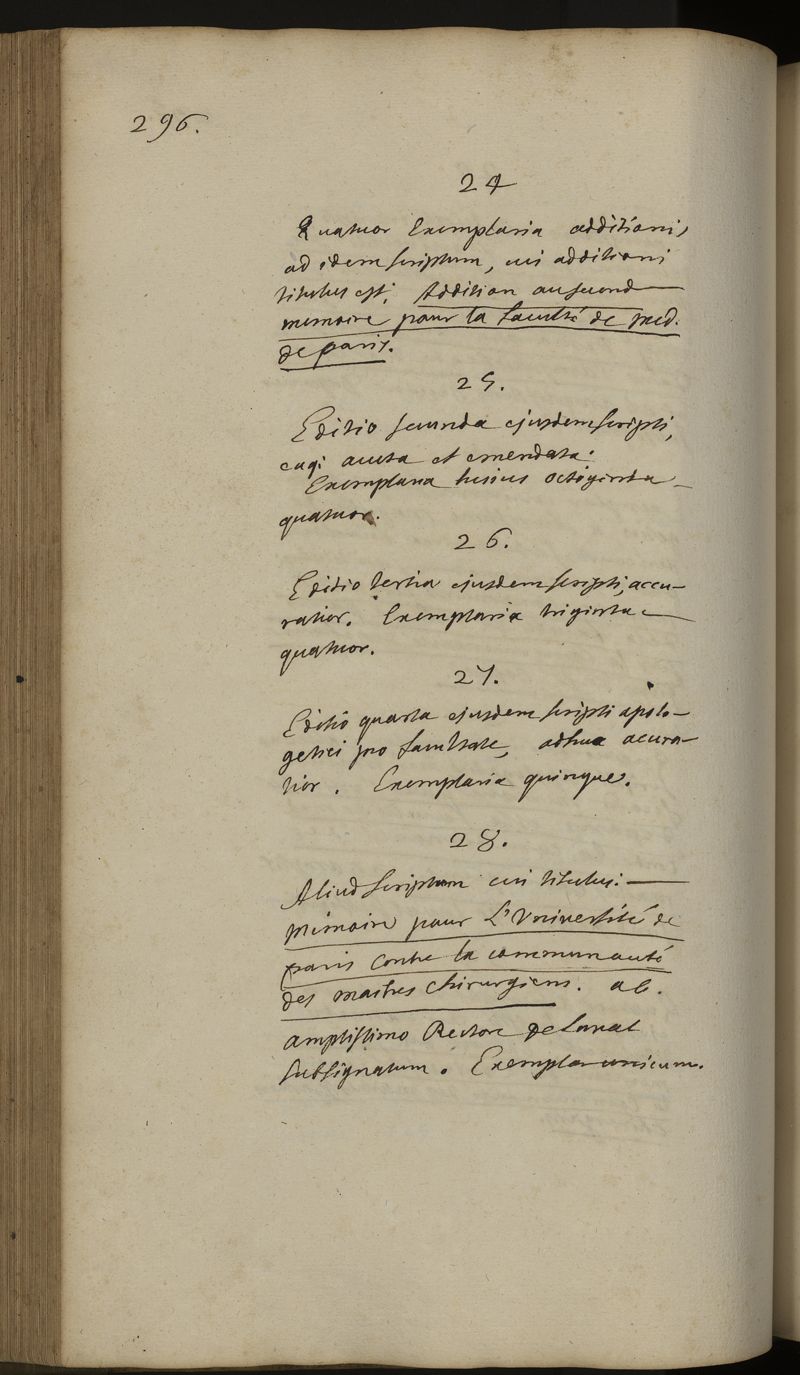 296.
24
Quatuor Exemplaria additioni,
ad idem scriptum, cui additioni
titulus est, Addition au second
memoire pour la faculté de med.
de paris.
25.
Editio secunda ejusdem scripti,
eaq; aucta et emendata.
Exemplaria
quatuor.
26.
Editio tertia ejusdem scripti, accu-
ratior. Exemplaria triginta
quatuor.
27.
Editio quarta ejusdem scripti apolo-
getici pro facultate, adhuc accura-
tior. Exemplaria quinque.
28.
Aliud scriptum cui titulus:
mémoire pour L'Université de
paris contre la communauté
des maitres chirurgiens. ab.
amplissimo Rectore
subsignatum. Exemplar unicum.